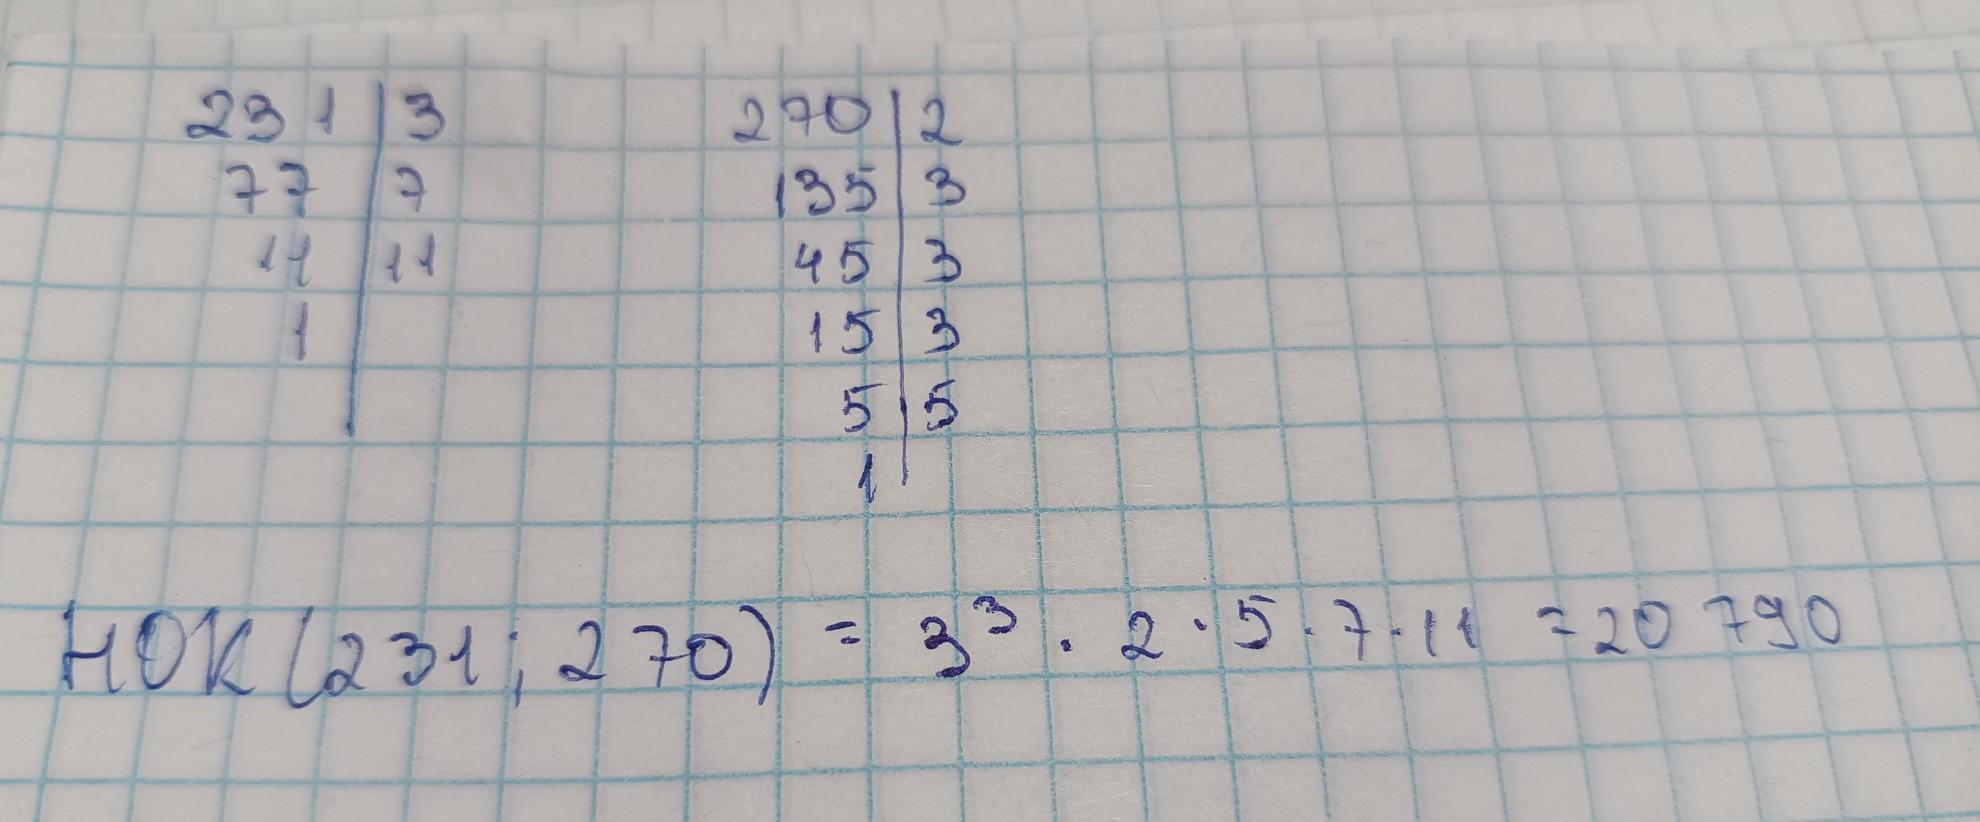 231 | 3
77 | 7
11 | 11
1 |
270 | 2
135 | 3
45 | 3
15 | 3
5 | 5
1 |
НОК(231; 270) = 3³ · 2 · 5 · 7 · 11 = 20 790